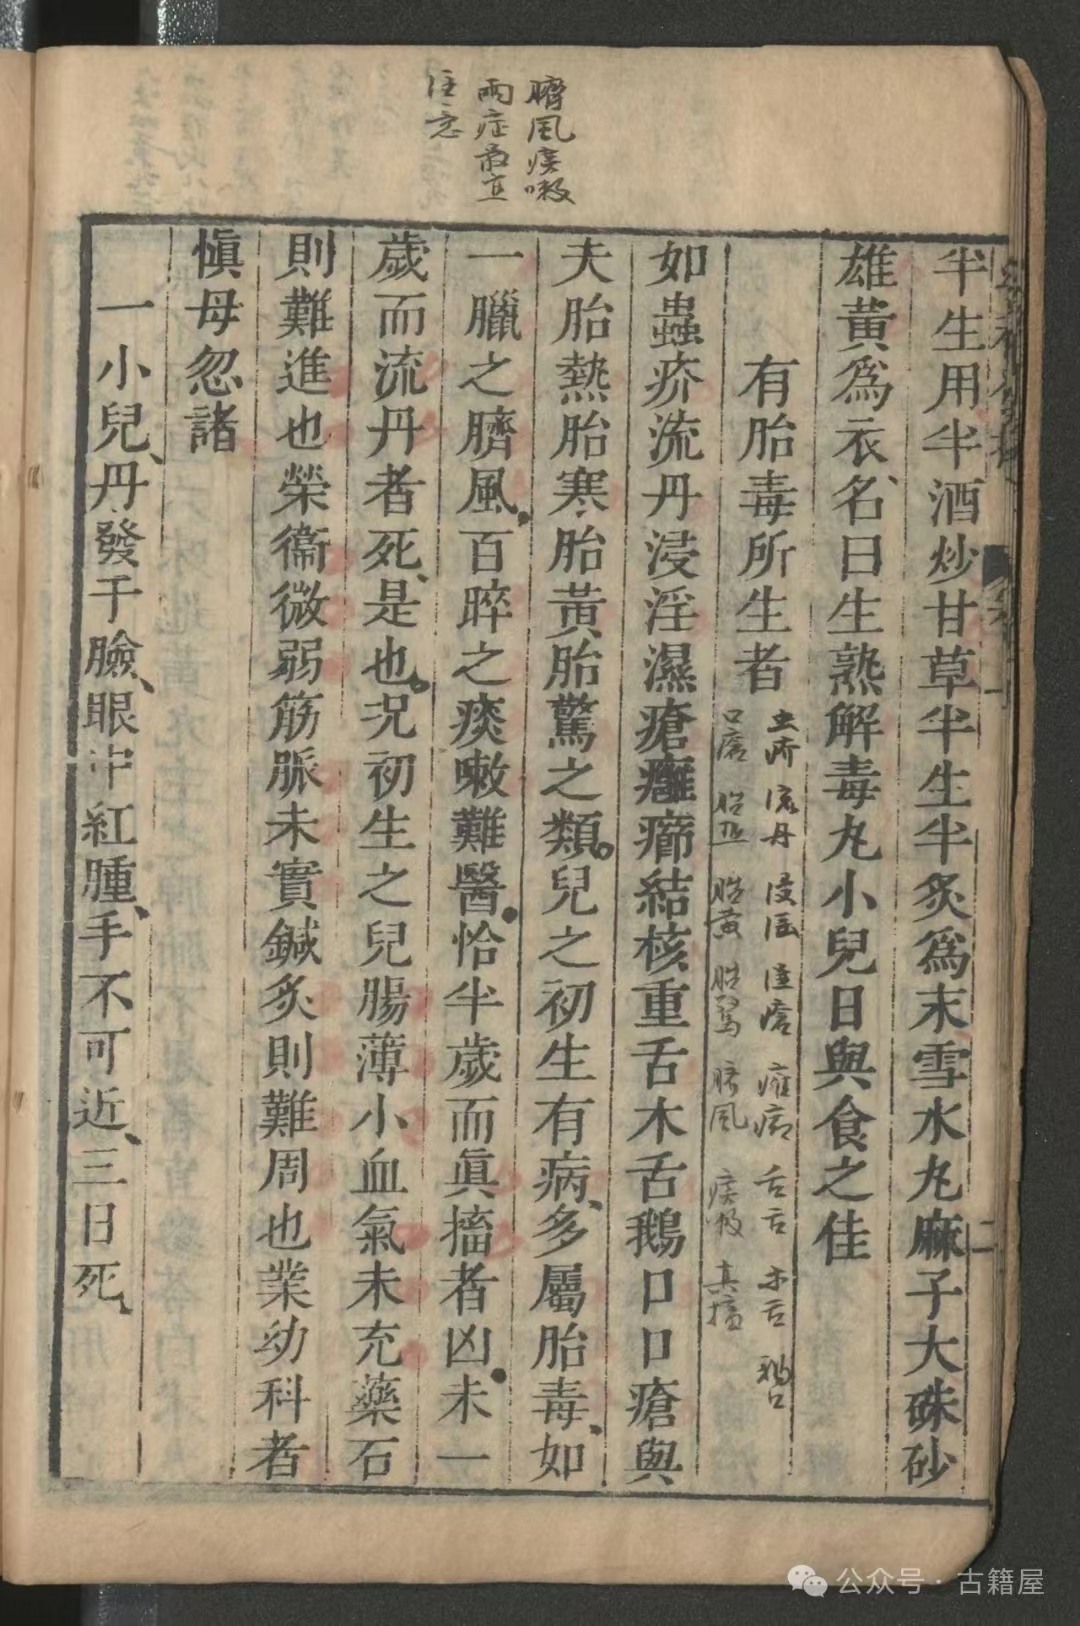 臍風痰嗽
兩症最宜
注意
半生用半酒炒甘草半生半炙為末雪水丸麻子大硃砂
雄黃為衣、名曰生熟解毒丸小兒日與食之佳
有胎毒所生者
虫疥 流丹 浸淫 湿瘡 癰癤 舌舌 木舌 鵝口
口瘡 胎熱 胎黃 胎驚 臍風 痰嗽 真搐
如蟲疥流丹浸淫濕瘡癰癤結核重舌木舌鵝口口瘡與
夫胎熱胎寒胎黃胎驚之類。兒之初生有病、多屬胎毒、如
一臘之臍風。百晬之痰嗽難醫。恰半歲而眞搐者凶。未一
歲而流丹者死、是也。況初生之兒腸薄小血氣未充藥石
則難進也榮衞微弱筋脈未實鍼灸則難周也業幼科者
愼毋忽諸
一小兒、丹發于臉、眼中紅腫、手不可近、三日死、
二
公众号・古籍屋